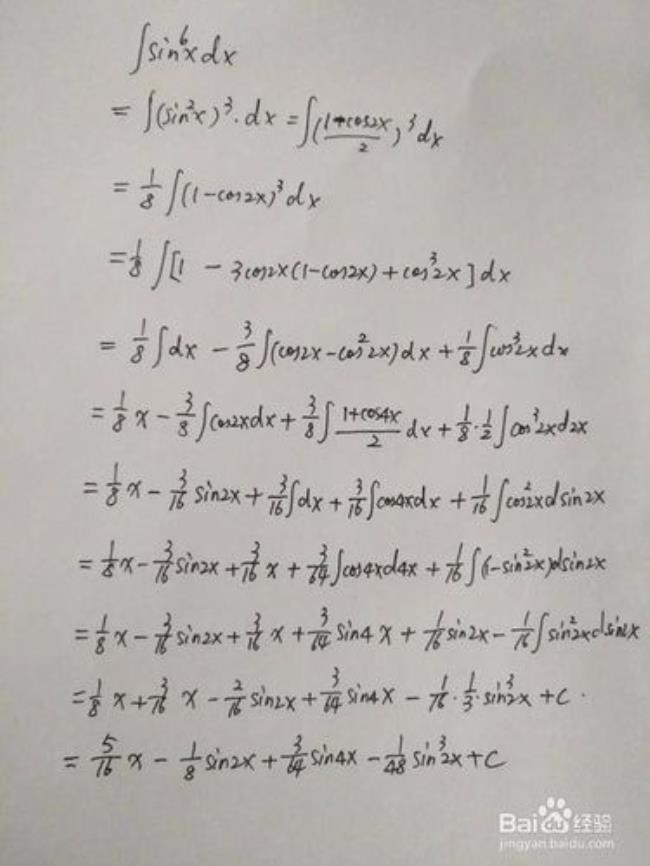 ∫sin⁶x dx
= ∫(sin²x)³·dx = ∫((1+cos2x)/2)³dx
= 1/8 ∫(1-cos2x)³dx
= 1/8 ∫[1 - 3cos2x(1-cos2x) + cos³2x]dx
= 1/8 ∫dx - 3/8 ∫(cos2x-cos²2x)dx + 1/8 ∫cos³2x dx
= 1/8 x - 3/8 ∫cos2xdx + 3/8 ∫(1+cos4x)/2 dx + 1/8·1/2 ∫cos³2xd2x
= 1/8 x - 3/16 sin2x + 3/16 ∫dx + 3/16 ∫cos4xdx + 1/16 ∫cos²2xdsin2x
= 1/8 x - 3/16 sin2x + 3/16 x + 3/64 ∫cos4xd4x + 1/16 ∫(1-sin²2x)dsin2x
= 1/8 x - 3/16 sin2x + 3/16 x + 3/64 sin4x + 1/16 sin2x - 1/16 ∫sin²2xdsin2x
= 1/8 x + 3/16 x - 2/16 sin2x + 3/64 sin4x - 1/16·1/3·sin³2x + C.
= 5/16 x - 1/8 sin2x + 3/64 sin4x - 1/48 sin³2x + C
Baidu经验
jingyan.baidu.com